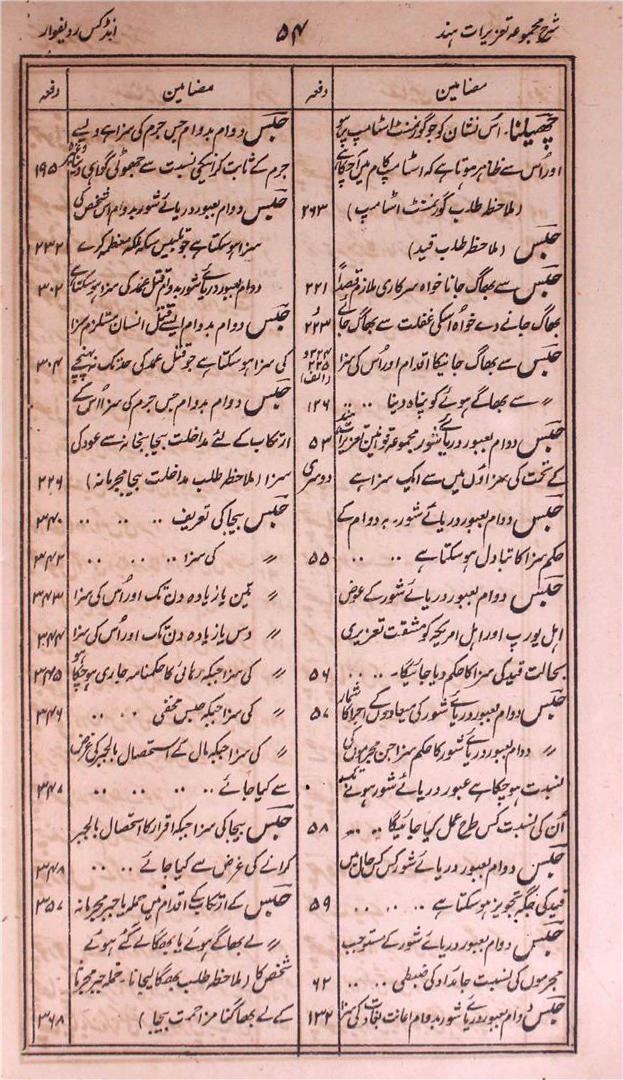 شرح مجموعہ تعزیرات ہند
۵۴
انڈکس ردیفوار
مضامین
دفعہ
چھیلنا۔ اُس نشان کو جو گورنمنٹ اسٹامپ پر ہو
اور اُس سے ظاہر ہوتا ہے کہ اسٹامپ کام میں آچکا ہے
(ملاحظہ طلب گورنمنٹ اسٹامپ) ۲۶۳
حبس (ملاحظہ طلب قید)
حبس سے بھاگ جانا خواہ سرکاری ملازم قصداً ۲۲۱
بھاگ جانے دے خواہ اسکی غفلت سے بھاگ جائے و ۲۲۳
حبس سے بھاگ جانیکا اقدام اور اُس کی سزا ۲۲۴ و ۲۲۵ (الف)
〃 سے بھاگے ہوئے کو پناہ دینا ۔۔ ۔۔ ۱۲۶
حبس دوام بعبور دریائے شور مجموعہ قوانین تعزیرات ہند ۵۳
کے تحت کی سزاؤں میں سے ایک سزا ہے دوسری
حبس دوام بعبور دریائے شور۔ بہ دوام کے
حکم سزا کا تبادل ہو سکتا ہے ۔۔ ۔۔ ۵۵
حبس دوام بعبور دریائے شور کے عوض
اہل یورپ اور اہل امریکہ کو مشقت تعزیری
بحالت قید کی سزا کا حکم دیا جائیگا۔ ۔۔ ۔۔ ۵۶
حبس دوام بعبور دریائے شور کی میعادوں کے اجزا کا شمار ۵۷
〃 دوام بعبور دریائے شور کا حکم سزا جن مجرموں کی
نسبت ہو چکا ہے عبور دریائے شور ہونے تک
اُن کی نسبت کس طرح عمل کیا جائیگا ۔۔ ۔۔ ۵۸
حبس دوام بعبور دریائے شور کس کس حال میں
قید کی جگہ تجویز ہو سکتا ہے ۔۔ ۔۔ ۔۔ ۵۹
حبس دوام بعبور دریائے شور کے مستوجب
مجرموں کی نسبت جائداد کی ضبطی ۔۔ ۔۔ ۶۲
حبس دوام بعبور دریائے شور بدوام اعانت بغاوت کی سزا ۱۳۲
مضامین
دفعہ
حبس دوام بدوام جس جرم کی سزا ہے ویسے
جرم کے ثابت کرانیکی نسبت سے جھوٹی گواہی دینا وغیرہ ۱۹۵
حبس دوام بعبور دریائے شور بدوام اس شخص کی
سزا ہو سکتا ہے جو تلبیس سکہ ملکہ معظمہ کرے ۲۳۲
دوام بعبور دریائے شور بدوام قتل عمد کی سزا ہو سکتا ہے ۳۰۲
حبس دوام بدوام ایسے قتل انسان مستلزم سزا
کی سزا ہو سکتا ہے جو قتل عمد کی حد تک نہ پہنچے ۳۰۴
حبس دوام بدوام جس جرم کی سزا اُس کے
ارتکاب کے لئے مداخلت بیجا بخانہ سے عود کی
سزا (ملاحظہ طلب مداخلت بیجا مجرمانہ)
حبس بیجا کی تعریف ۔۔ ۔۔ ۔۔ ۳۴۰
〃 کی سزا ۔۔ ۔۔ ۔۔ ۳۴۲
〃 تین یا زیادہ دن تک اور اُس کی سزا ۳۴۳
〃 دس یا زیادہ دن تک اور اُس کی سزا ۳۴۴
〃 کی سزا جبکہ رہائی کا حکمنامہ جاری ہو چکا ہو ۳۴۵
〃 کی سزا جبکہ حبس مخفی ۔۔ ۔۔ ۳۴۶
〃 کی سزا جبکہ مال کے استحصال بالجبر کی غرض
سے کیا جائے ۔۔ ۔۔ ۔۔ ۔۔ ۳۴۷
حبس بیجا کی سزا جبکہ اقرار کا استحصال بالجبر
کرانے کی غرض سے کیا جائے ۔۔ ۔۔ ۳۴۸
حبس کے ارتکاب کے اقدام میں حملہ یا جبر مجرمانہ ۳۵۷
〃 لے بھاگے ہوئے یا بھگا لے گئے ہوئے
شخص کا (ملاحظہ طلب بھگا لیجانا۔ حملہ جبر مجرمانہ
کے لے بھاگنا مزاحمت بیجا) ۳۶۸